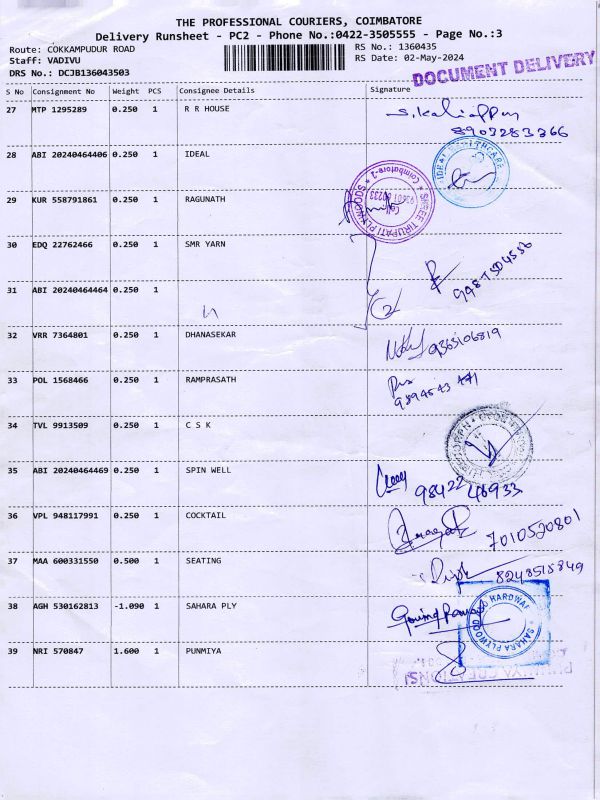 THE PROFESSIONAL COURIERS, COIMBATORE
Delivery Runsheet - PC2 - Phone No.:0422-3505555 - Page No.:3
Route: COKKAMPUDUR ROAD
RS No.: 1360435
Staff: VADIVU
RS Date: 02-May-2024
DRS No.: DCJB136043503
DOCUMENT DELIVERY
S No Consignment No Weight PCS Consignee Details Signature
27 MTP 1295289 0.250 1 R R HOUSE
8903283366
28 ABI 20240464406 0.250 1 IDEAL
29 KUR 558791861 0.250 1 RAGUNATH
SHREE TIRUPATI PLYWOOD
30 EDQ 22762466 0.250 1 SMR YARN
31 ABI 20240464464 0.250 1
"
32 VRR 7364801 0.250 1 DHANASEKAR
9365106819
33 POL 1568466 0.250 1 RAMPRASATH
34 TVL 9913509 0.250 1 C S K
35 ABI 20240464469 0.250 1 SPIN WELL
9842246933
36 VPL 948117991 0.250 1 COCKTAIL
7010520801
37 MAA 600331550 0.500 1 SEATING
8248515849
38 AGH 530162813 -1.090 1 SAHARA PLY
SAHARA PLYWOOD AND HARDWARE
39 NRI 570847 1.600 1 PUNMIYA